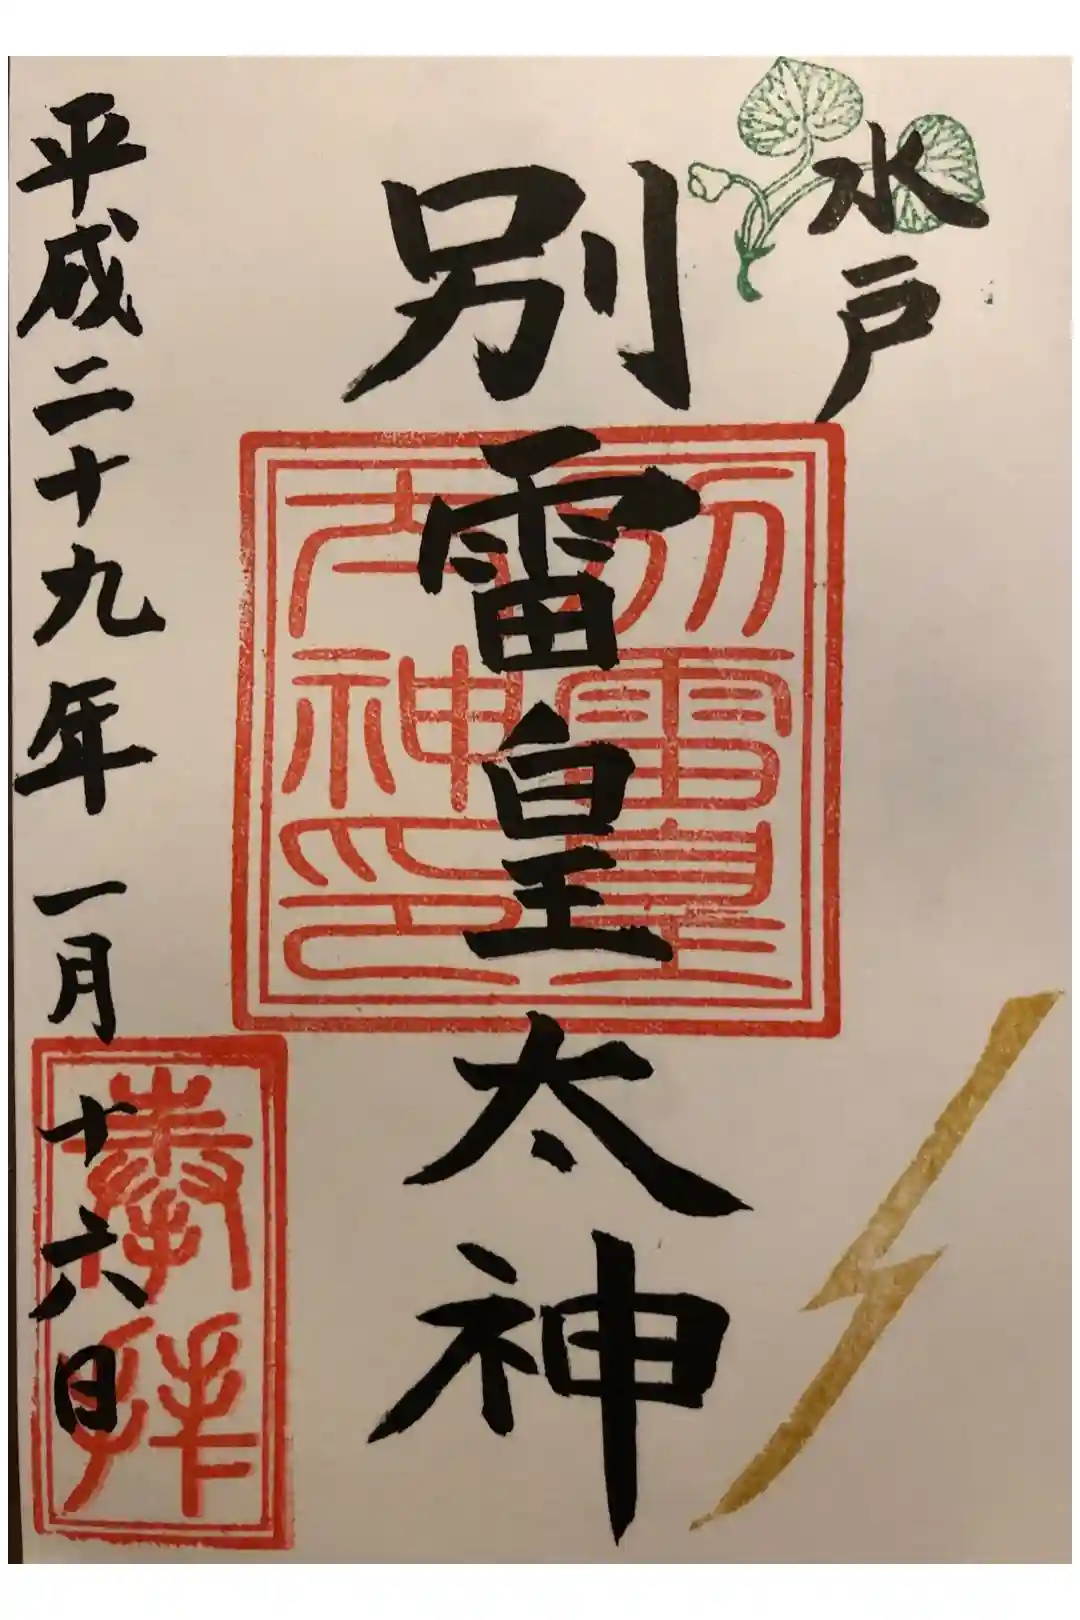 水戸
別雷皇太神
平成二十九年一月十六日
別雷皇
太神印
奉拝